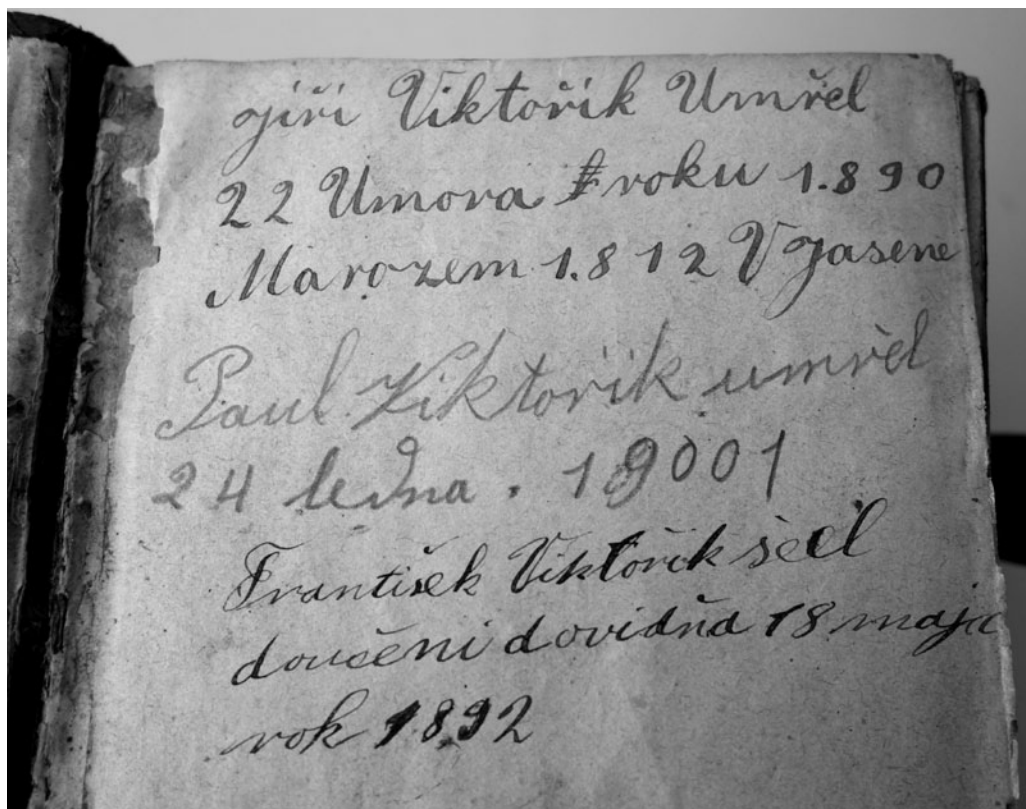 Jiři Viktořik Umřel
22 Umora roku 1.890
Marozem 1.812 V Jasene
Paul Viktořik umřel
24 ledna . 19001
František Viktořik šeel
doučeni dovidňa 18 maja
rok 1892